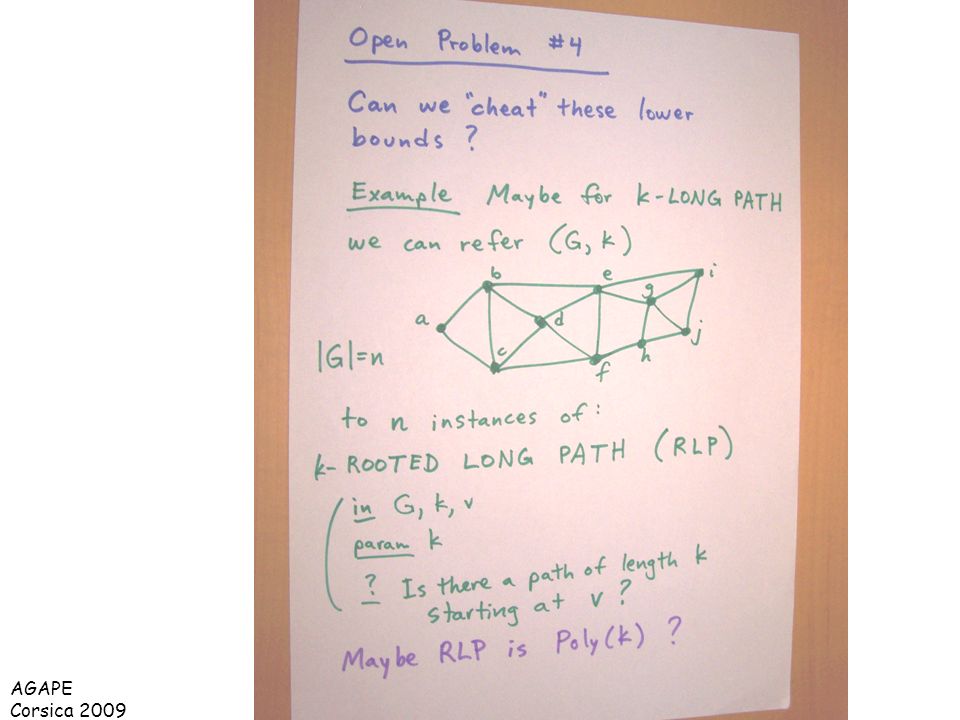 Open Problem #4
Can we "cheat" these lower
bounds ?
Example Maybe for k-LONG PATH
we can refer (G, k)
b e i
g
a d
j
c h
f
|G|=n
to n instances of:
k-ROOTED LONG PATH (RLP)
in G, k, v
param k
? Is there a path of length k
starting at v ?
Maybe RLP is Poly(k) ?
AGAPE
Corsica 2009